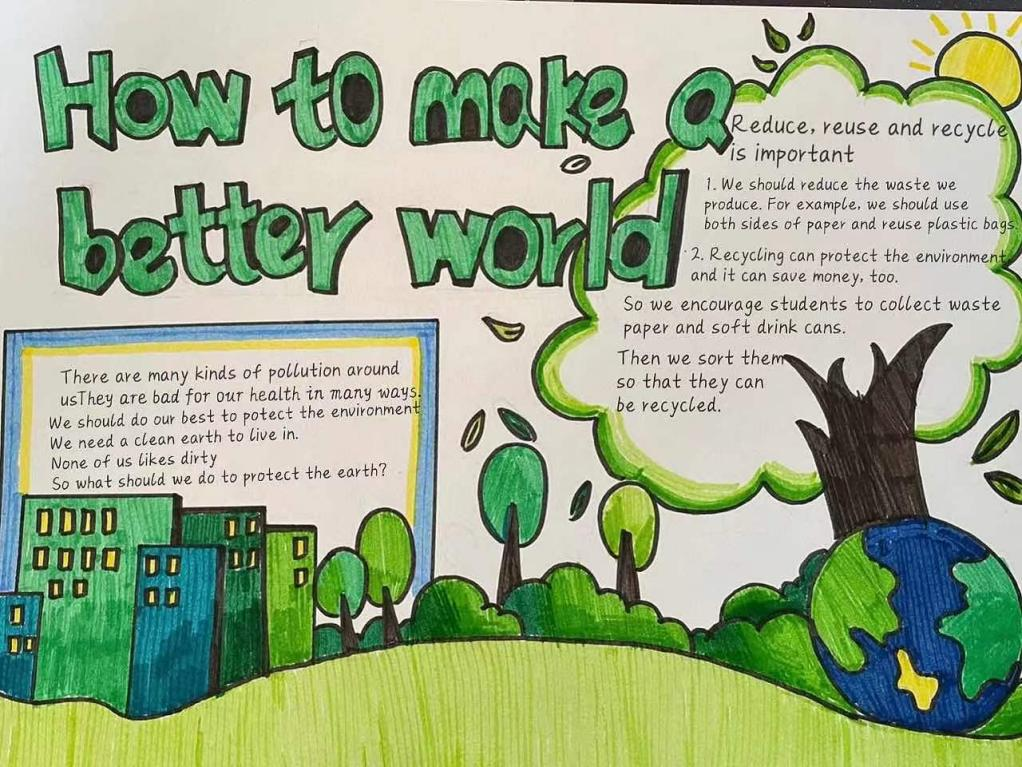 How to make a
better world
Reduce, reuse and recycle
is important
1. We should reduce the waste we
produce. For example, we should use
both sides of paper and reuse plastic bags.
2. Recycling can protect the environment
and it can save money, too.
So we encourage students to collect waste
paper and soft drink cans.
Then we sort them
so that they can
be recycled.
There are many kinds of pollution around
usThey are bad for our health in many ways.
We should do our best to potect the environment
We need a clean earth to live in.
None of us likes dirty
So what should we do to protect the earth?